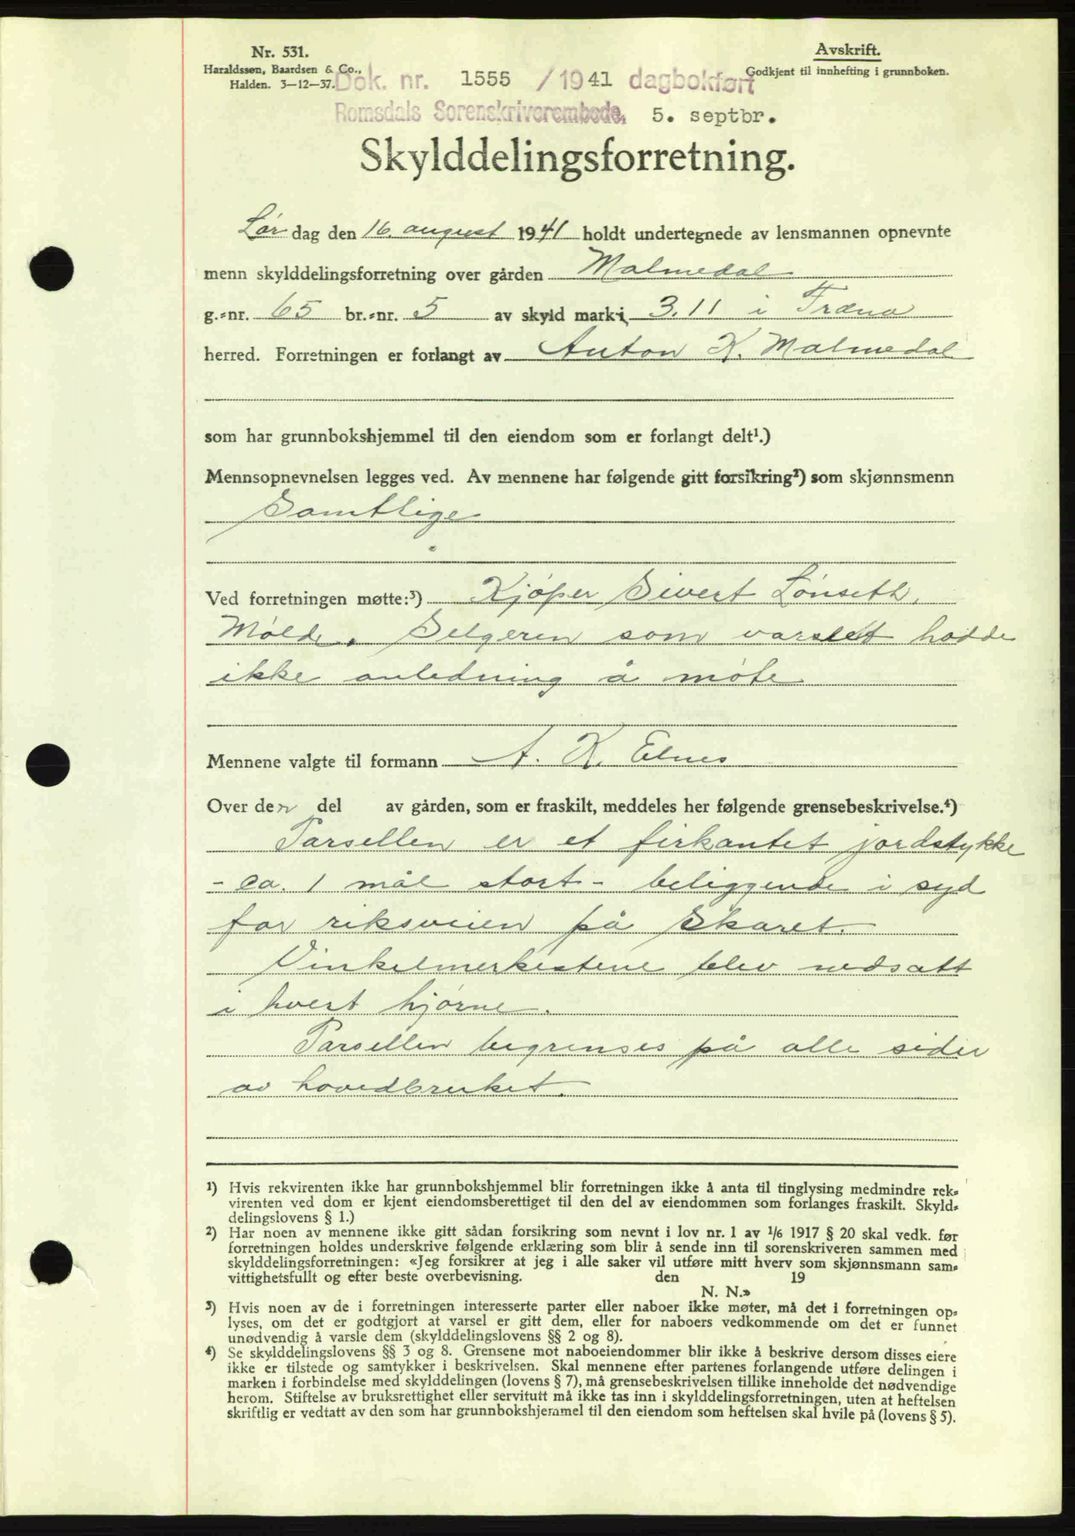 Nr. 531.
Haraldssøn, Baardsen & Co.,
Halden. 3–12–37.
Avskrift.
Godkjent til innhefting i grunnboken.
Dok. nr. 1555 / 1941 dagbokført
Romsdals Sorenskriverembede, 5. septbr.
Skylddelingsforretning.
Lør dag den 16. august 1941 holdt undertegnede av lensmannen opnevnte
menn skylddelingsforretning over gården Malmedal
g.=nr. 65 br.=nr. 5 av skyld mark 3.11 i Fræna
herred. Forretningen er forlangt av Anton K. Malmedal
som har grunnbokshjemmel til den eiendom som er forlangt delt¹.)
Mennsopnevnelsen legges ved. Av mennene har følgende gitt forsikring²) som skjønnsmenn
Samtlige
Ved forretningen møtte:³) Kjøper Sivert Lønseth,
Molde. Selgeren som varslet hadde
ikke anledning å møte
Mennene valgte til formann A. K. Elnes
Over den del av gården, som er fraskilt, meddeles her følgende grensebeskrivelse.⁴)
Parsellen er et firkantet jordstykke
- ca. 1 mål stort - beliggende i syd
for riksveien på Skaret.
Vinkelmerkestene blev nedsatt
i hvert hjørne.
Parsellen begrenses på alle sider
av hovedbruket.
¹) Hvis rekvirenten ikke har grunnbokshjemmel blir forretningen ikke å anta til tinglysing medmindre rek=
virenten ved dom er kjent eiendomsberettiget til den del av eiendommen som forlanges fraskilt. Skyld=
delingslovens § 1.)
²) Har noen av mennene ikke gitt sådan forsikring som nevnt i lov nr. 1 av 1/6 1917 § 20 skal vedk. før
forretningen holdes underskrive følgende erklæring som blir å sende inn til sorenskriveren sammen med
skylddelingsforretningen: «Jeg forsikrer at jeg i alle saker vil utføre mitt hverv som skjønnsmann sam=
vittighetsfullt og efter beste overbevisning. den 19
N. N.»
³) Hvis noen av de i forretningen interesserte parter eller naboer ikke møter, må det i forretningen op=
lyses, om det er godtgjort at varsel er gitt dem, eller for naboers vedkommende om det er funnet
unødvendig å varsle dem (skylddelingslovens §§ 2 og 8).
⁴) Se skylddelingslovens §§ 3 og 8. Grensene mot naboeiendommer blir ikke å beskrive dersom disses eiere
ikke er tilstede og samtykker i beskrivelsen. Skal mennene efter partenes forlangende utføre delingen i
marken i forbindelse med skylddelingen (lovens § 7), må grensebeskrivelsen tillike inneholde det nødvendige
herom. Stiftelse av bruksrettighet eller servitutt må ikke tas inn i skylddelingsforretningen, uten at heftelsen
skriftlig er vedtatt av den som har grunnbokshjemmel til den eiendom som heftelsen skal hvile på (lovens § 5).